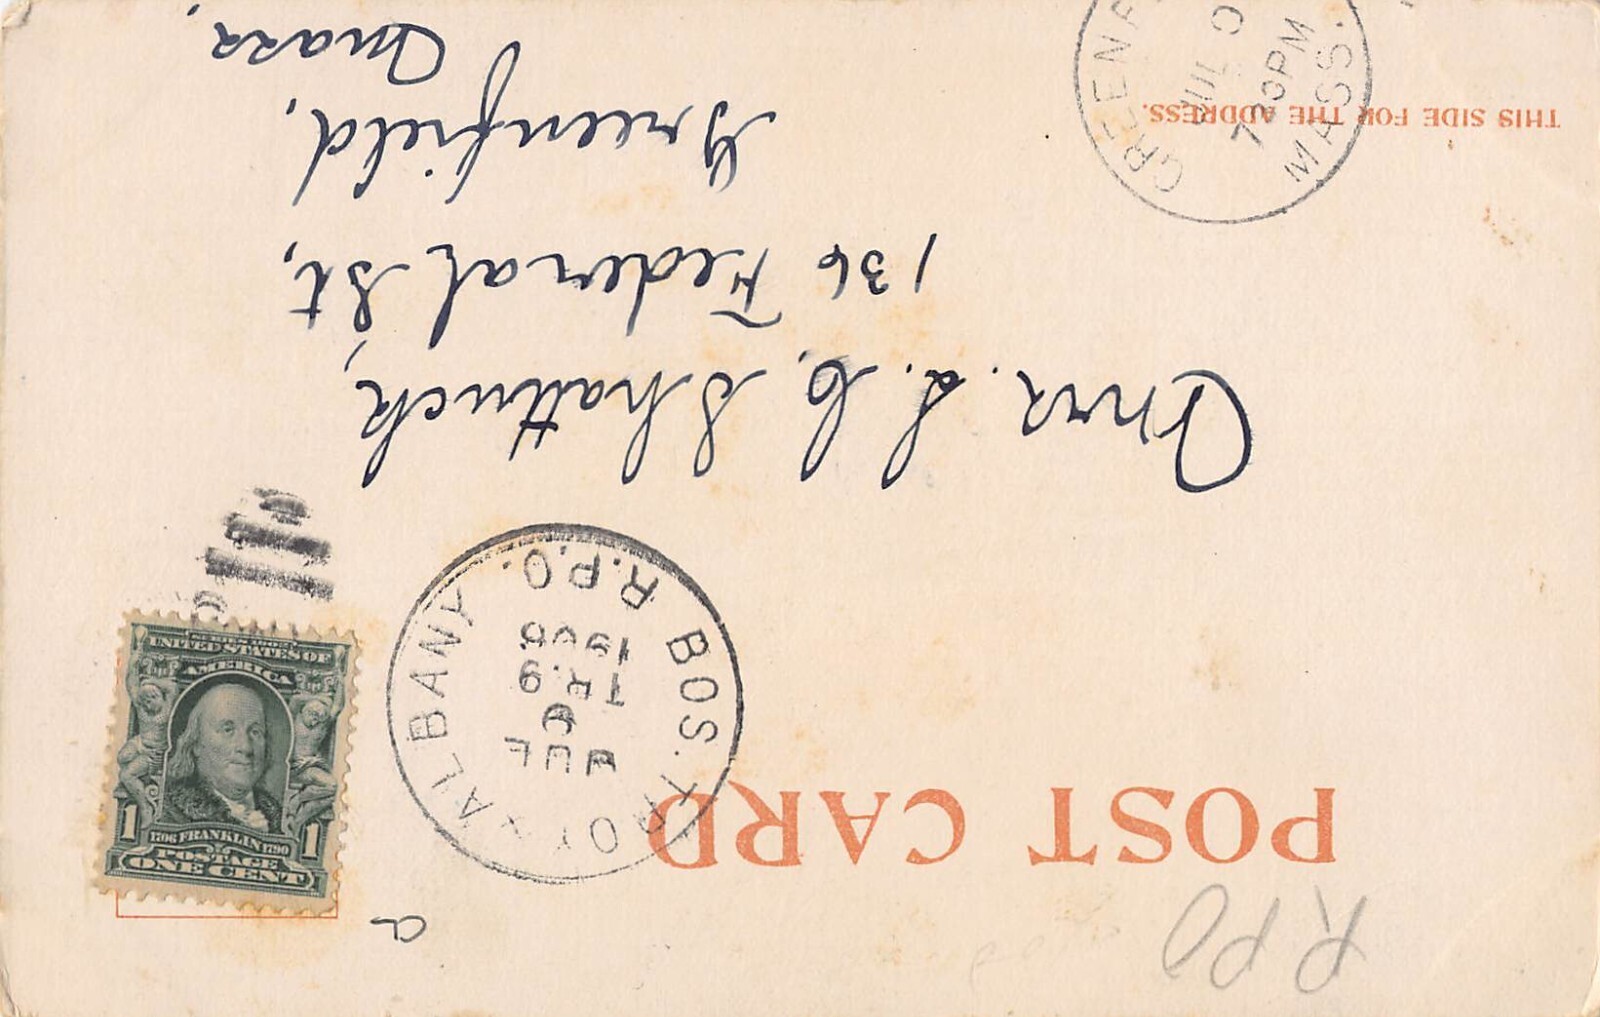 RPO
a
POST CARD
BOS. TROY & ALBANY
R.P.O.
JUL
TR.9
UNITED STATES OF
AMERICA
1706 FRANKLIN 1790
1 1
POSTAGE
ONE CENT
Mrs. L. C. Shattuck,
136 Federal St,
Greenfield,
Mass,
THIS SIDE FOR THE ADDRESS.
JUL
PM
MASS.